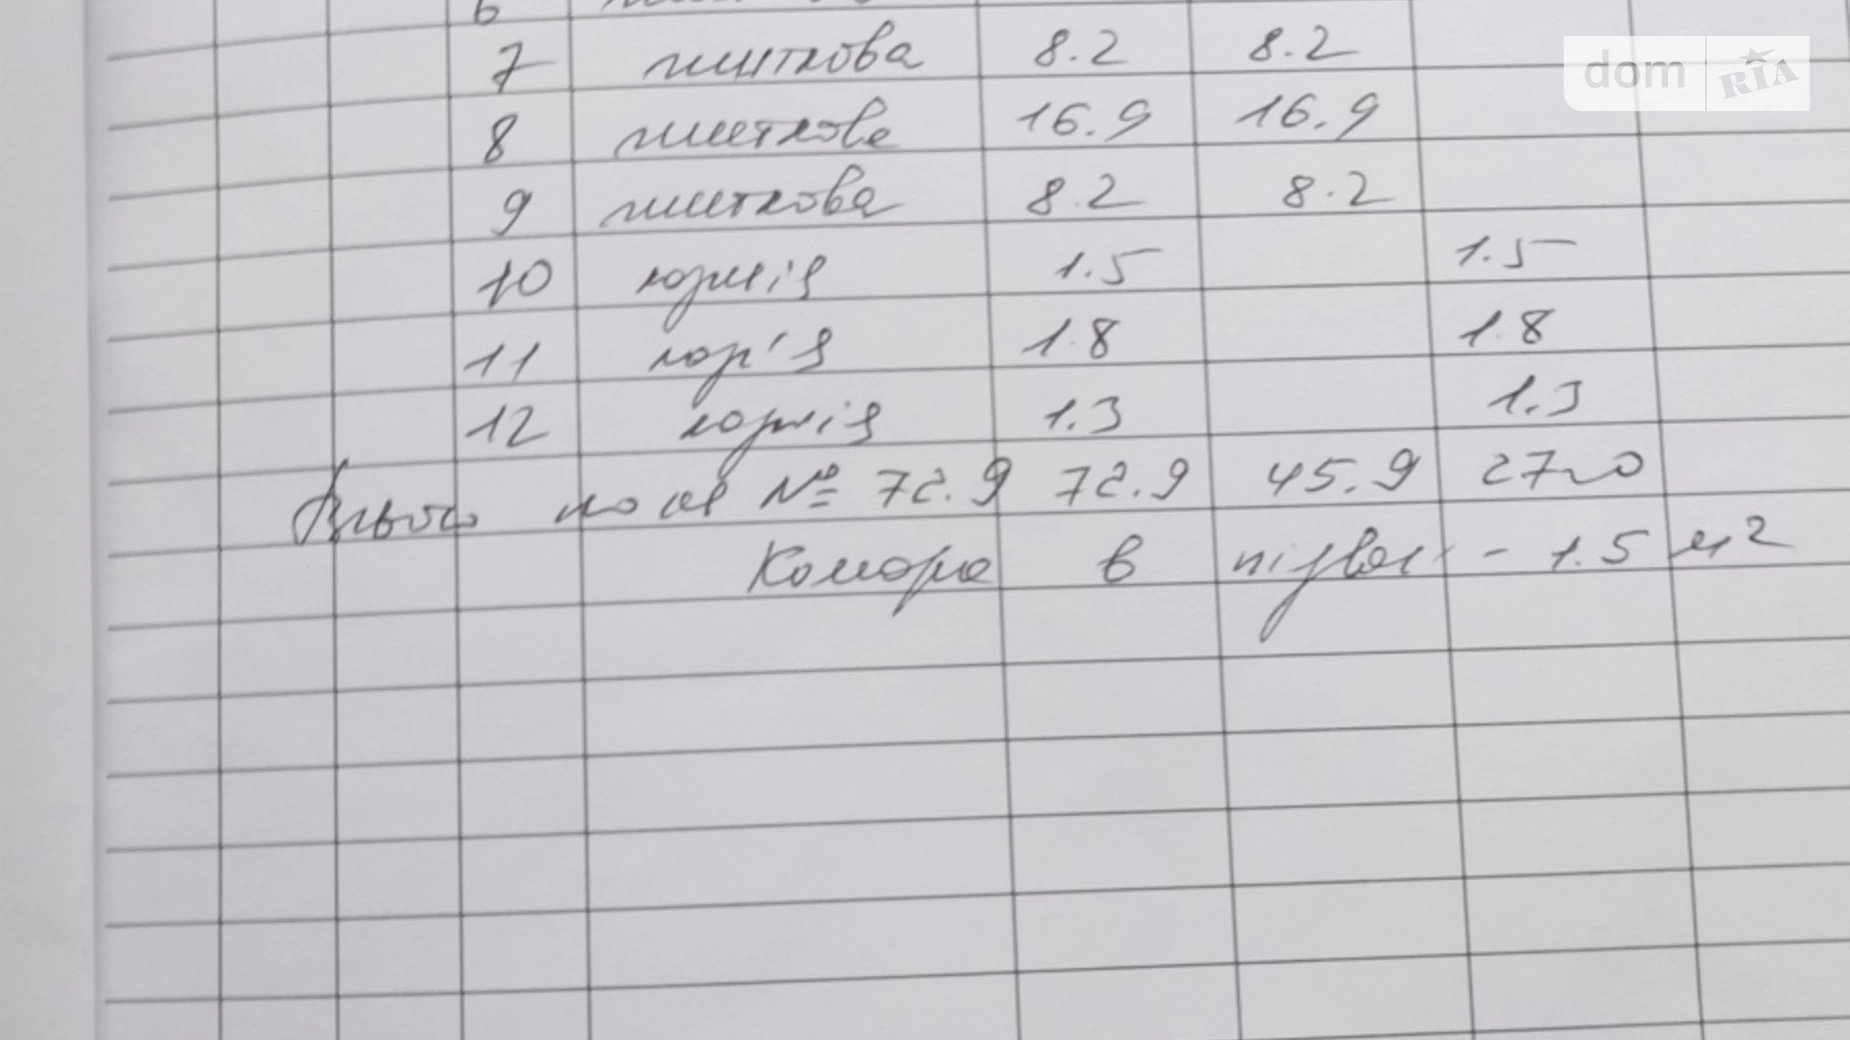 6
7 житлова 8.2 8.2
dom RIA
8 житлове 16.9 16.9
9 житлова 8.2 8.2
10 1.5 1.5
11 1.8 1.8
12 1.3 1.3
№ 72.9 72.9 45.9 27.0
Комора в - 1.5 м2